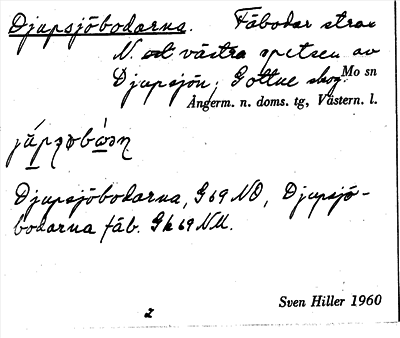 Djupsjöbodarna. Fäbodar strax
N. ost västra spetsen av
Djupsjön; Gottne skog. Mo sn
Ångerm. n. doms. tg, Västern. l.
Djupsjöbodarna, G 69 NO, Djupsjö-
bodarna fäb. Gk 69 NM.
Sven Hiller 1960
2